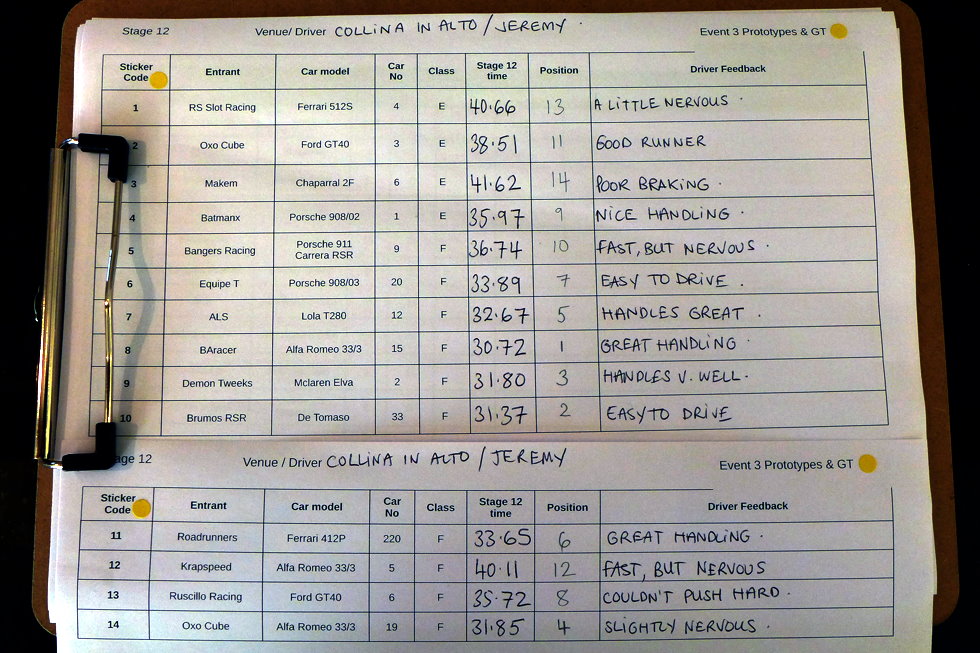 Stage 12 Venue/ Driver COLLINA IN ALTO / JEREMY . Event 3 Prototypes & GT
Sticker Code Entrant Car model Car No Class Stage 12 time Position Driver Feedback
1 RS Slot Racing Ferrari 512S 4 E 40.66 13 A LITTLE NERVOUS .
2 Oxo Cube Ford GT40 3 E 38.51 11 GOOD RUNNER
3 Makem Chaparral 2F 6 E 41.62 14 POOR BRAKING .
4 Batmanx Porsche 908/02 1 E 35.97 9 NICE HANDLING .
5 Bangers Racing Porsche 911 Carrera RSR 9 F 36.74 10 FAST, BUT NERVOUS .
6 Equipe T Porsche 908/03 20 F 33.89 7 EASY TO DRIVE .
7 ALS Lola T280 12 F 32.67 5 HANDLES GREAT .
8 BAracer Alfa Romeo 33/3 15 F 30.72 1 GREAT HANDLING .
9 Demon Tweeks Mclaren Elva 2 F 31.80 3 HANDLES V. WELL.
10 Brumos RSR De Tomaso 33 F 31.37 2 EASY TO DRIVE
age 12 Venue / Driver COLLINA IN ALTO / JEREMY Event 3 Prototypes & GT
Sticker Code Entrant Car model Car No Class Stage 12 time Position Driver Feedback
11 Roadrunners Ferrari 412P 220 F 33.65 6 GREAT HANDLING .
12 Krapspeed Alfa Romeo 33/3 5 F 40.11 12 FAST, BUT NERVOUS
13 Ruscillo Racing Ford GT40 6 F 35.72 8 COULDN'T PUSH HARD .
14 Oxo Cube Alfa Romeo 33/3 19 F 31.85 4 SLIGHTLY NERVOUS .